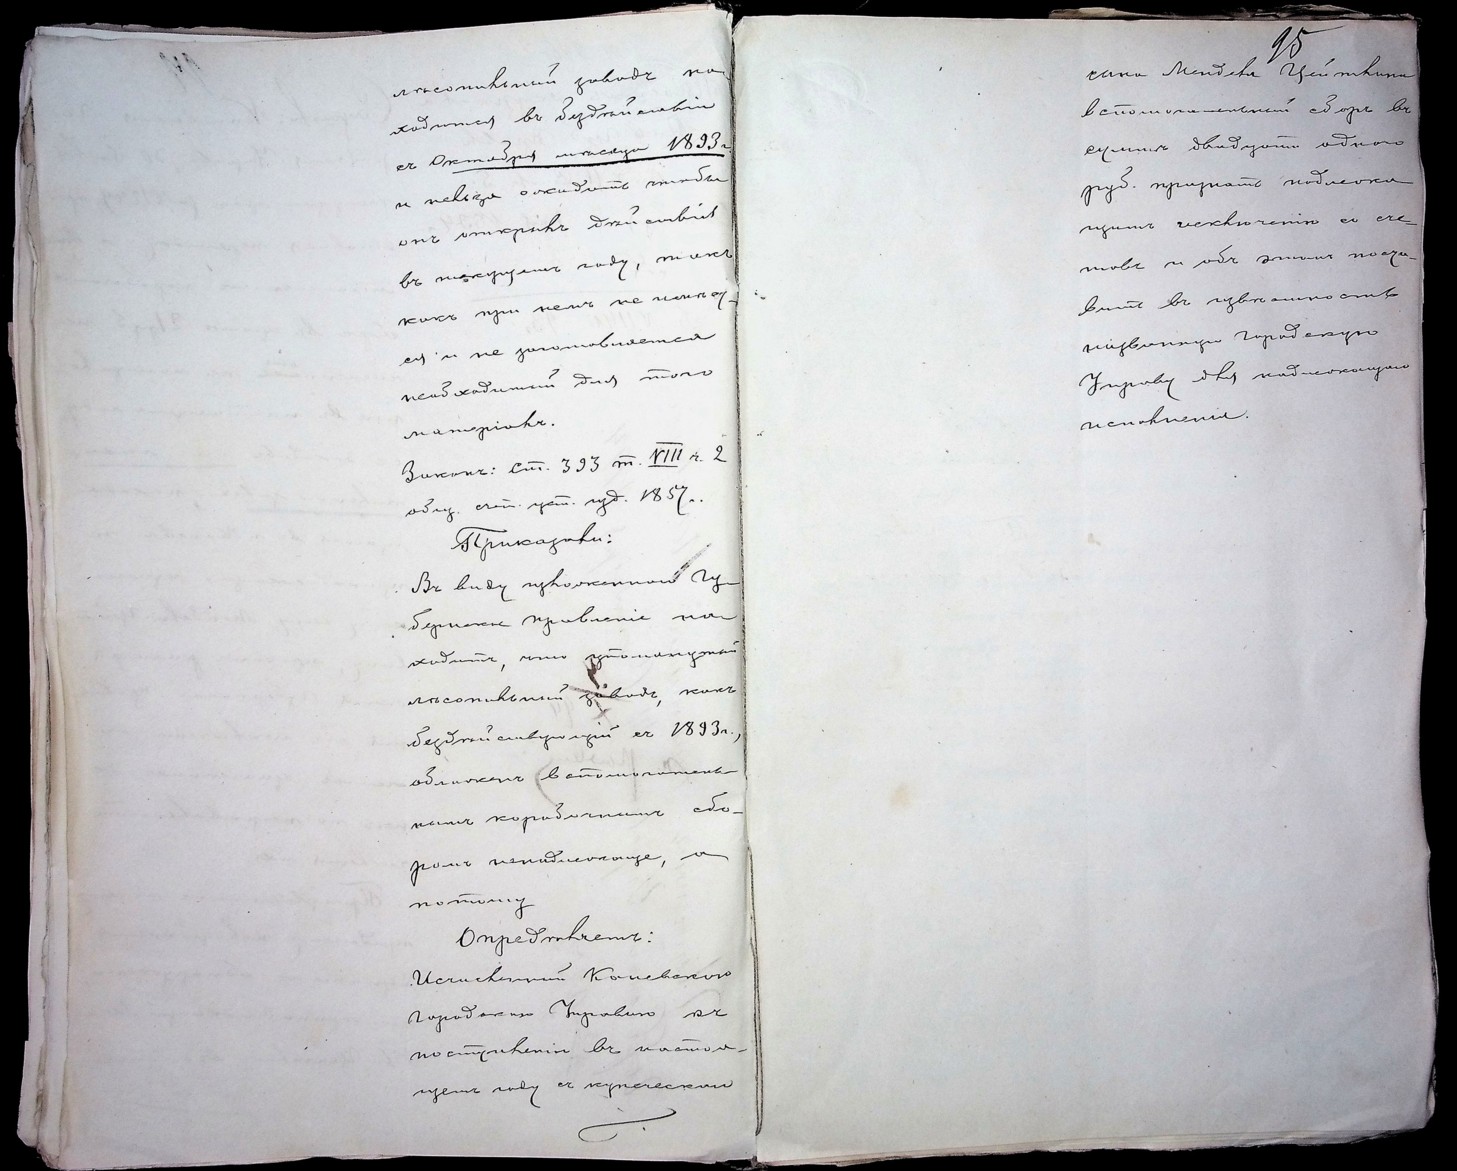 лѣсопильный заводъ на-
ходится въ бездѣйствіи
съ Октября мѣсяца 1893 г.
и нельзя ожидать чтобы
онъ открылъ дѣйствія
въ текущемъ году, такъ
какъ при немъ не имѣет-
ся и не заготовляется
необходимый для того
матеріалъ.
Законъ: Ст. 393 т. VIII ч. 2
общ. счт. уст. изд. 1857 г.
Приказали:
Въ виду изложеннаго Гу-
бернское Правленіе на-
ходитъ, что упомянутый
лѣсопильный заводъ, какъ
бездѣйствующій съ 1893 г.,
обложенъ вспомогатель-
нымъ коробочнымъ сбо-
ромъ неподлежаще, а
потому
Опредѣляетъ:
Исчисленный Каневскою
Городскою Управою къ
поступленію въ настоя-
щемъ году съ купеческаго
95
сына Менделя Цейтлина
вспомогательный сборъ въ
суммѣ двадцати одного
руб. признать подлежа-
щимъ исключенію со сче-
товъ и объ этомъ поста-
вить въ извѣстность
названную Городскую
Управу для надлежащаго
исполненія.